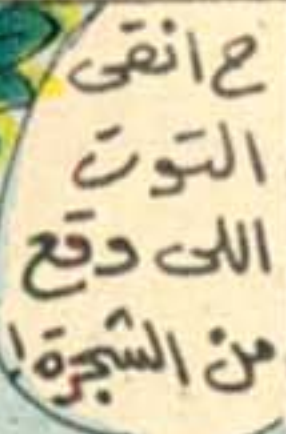 ح انقى
التوت
اللى وقع
من الشجرة!